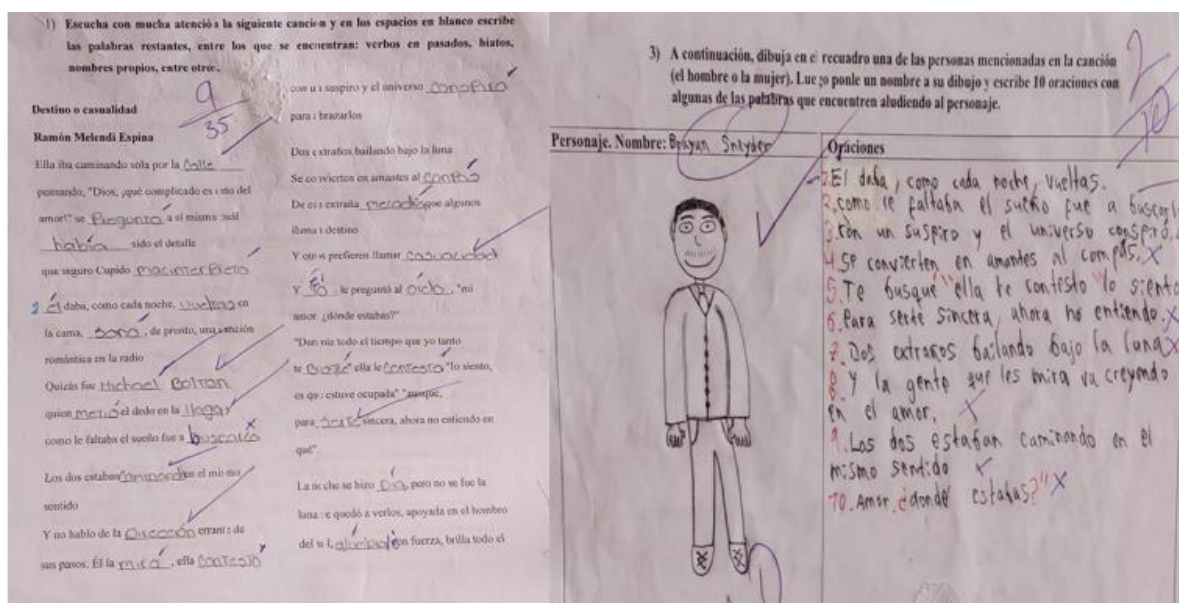 1) Escucha con mucha atención la siguiente canción y en los espacios en blanco escribe
las palabras restantes, entre los que se encuentran: verbos en pasados, hiatos,
nombres propios, entre otros.
9/35
Destino o casualidad
Ramón Melendi Espina
Ella iba caminando sola por la Calle
pensando, "Dios, ¡qué complicado es esto del
amor!" se Pregunto a sí misma cuál
había sido el detalle
que seguro Cupido
2 él daba, como cada noche, vueltas en
la cama, Sonó, de pronto, una canción
romántica en la radio
Quizás fue Michael Bolton
quien metió el dedo en la llaga y
como le faltaba el sueño fue a buscarlo
Los dos estaban caminando en el mismo
sentido
Y no hablo de la Dirección errante de
sus pasos. Él la mira, ella contesto
con un suspiro y el universo
para abrazarlos
Dos extraños bailando bajo la luna
Se convierten en amantes al compás
De esa extraña melodía que algunos
llaman destino
Y otros prefieren llamar casualidad
Y él le preguntó al, "mi
amor, ¿dónde estabas?"
"Durante todo el tiempo que yo tanto
te busqué" ella le contestó "lo siento,
es que estuve ocupada" "aunque,
para serte sincera, ahora no entiendo en
qué"
La noche se hizo Día, pero no se fue la
luna se quedó a verlos, apoyada en el hombro
del sol, con fuerza, brilla todo el
3) A continuación, dibuja en el recuadro una de las personas mencionadas en la canción
(el hombre o la mujer). Luego ponle un nombre a su dibujo y escribe 10 oraciones con
algunas de las palabras que encuentren aludiendo al personaje.
2/10
Personaje. Nombre: Brayan Sneyder
Oraciones
1. El daba, como cada noche, vueltas.
2. como le faltaba el sueño fue a buscarlo
3. con un suspiro y el universo conspiró.
4. Se convierten en amantes al compás.
5. Te busqué "ella te contesto "lo siento
6. Para serte sincera, ahora no entiendo.
7. Dos extraños bailando bajo la luna
8. Y la gente que les mira va creyendo
en el amor.
9. Los dos estaban caminando en el
mismo sentido
10. Amor, ¿donde estabas?"